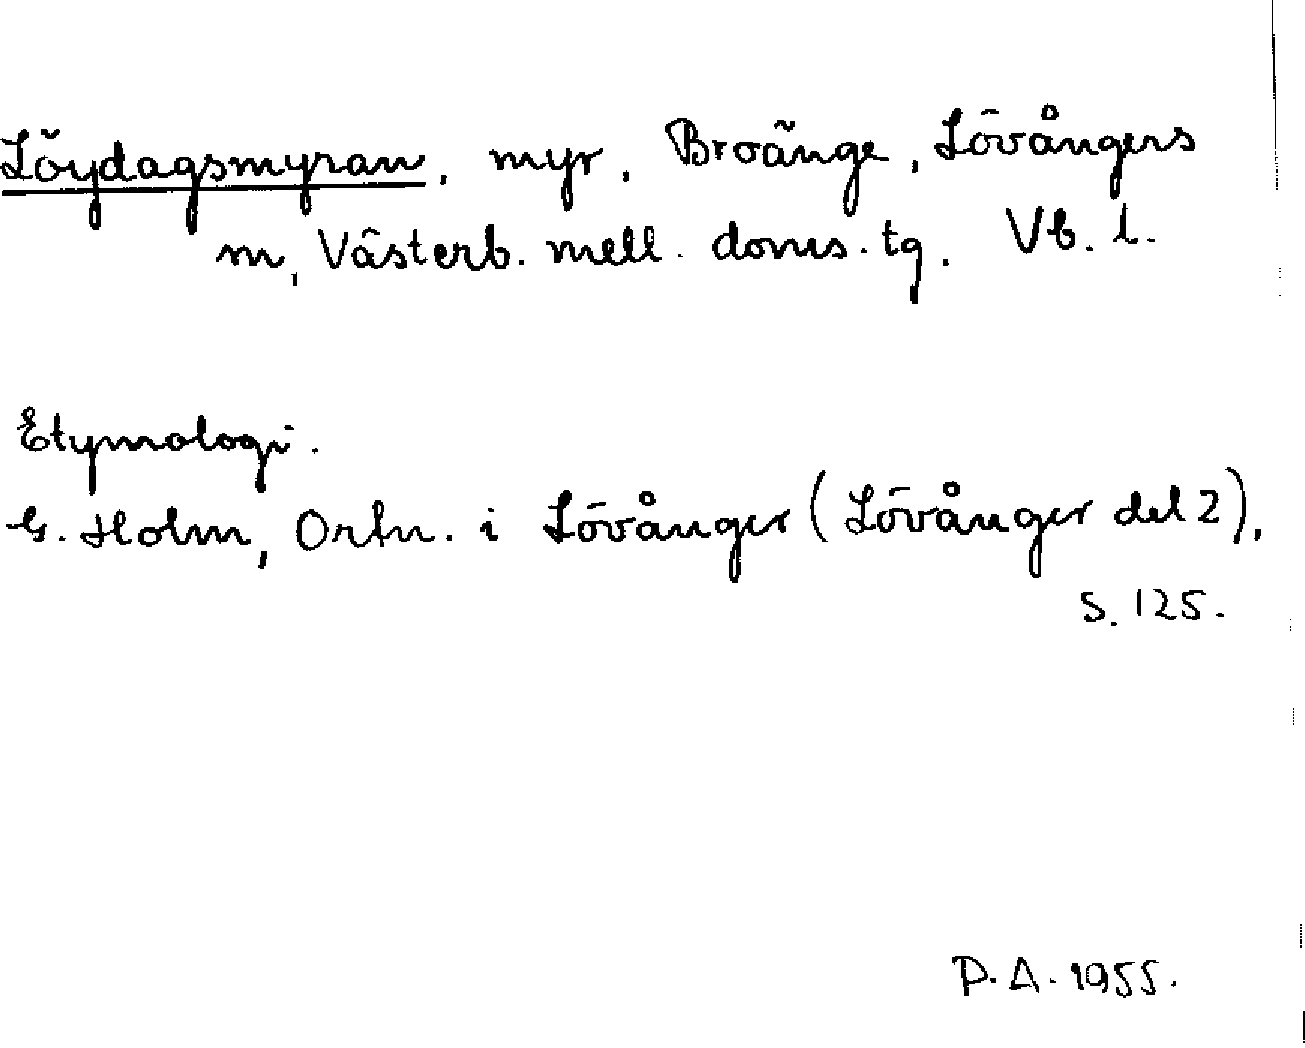 Löydagsmyran, myr, Broänge, Lövångers
m, Västerb. mell. doms. tg. Vb. l.
Etymologi.
G. Holm, Ortn. i Lövånger (Lövånger del 2),
s. 125.
P. A. 1955.